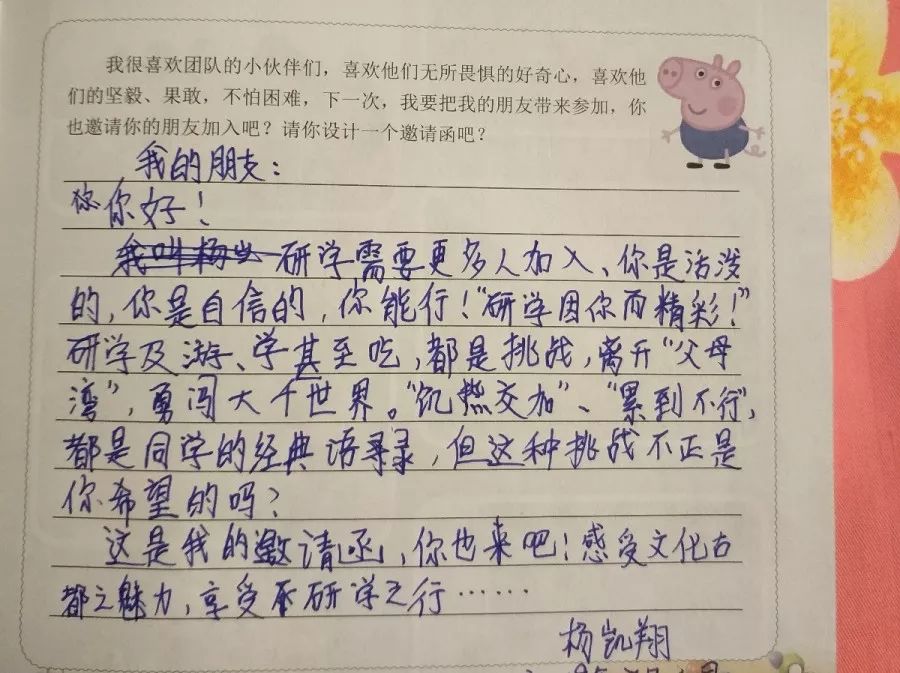 我很喜欢团队的小伙伴们，喜欢他们无所畏惧的好奇心，喜欢他
们的坚毅、果敢，不怕困难，下一次，我要把我的朋友带来参加，你
也邀请你的朋友加入吧？请你设计一个邀请函吧？
我的朋友：
你你好！
我叫杨 研学需要更多人加入、你是活泼
的，你是自信的，你能行！“研学因你而精彩！”
研学及游、学其至吃，都是挑战，离开“父母
湾”，勇闯大千世界。“饥热交加”、“累到不行”，
都是同学的经典语录，但这种挑战不正是
你希望的吗？
这是我的邀请函，你也来吧！感受文化古
都之魅力，享受研学之行……
杨凯翔